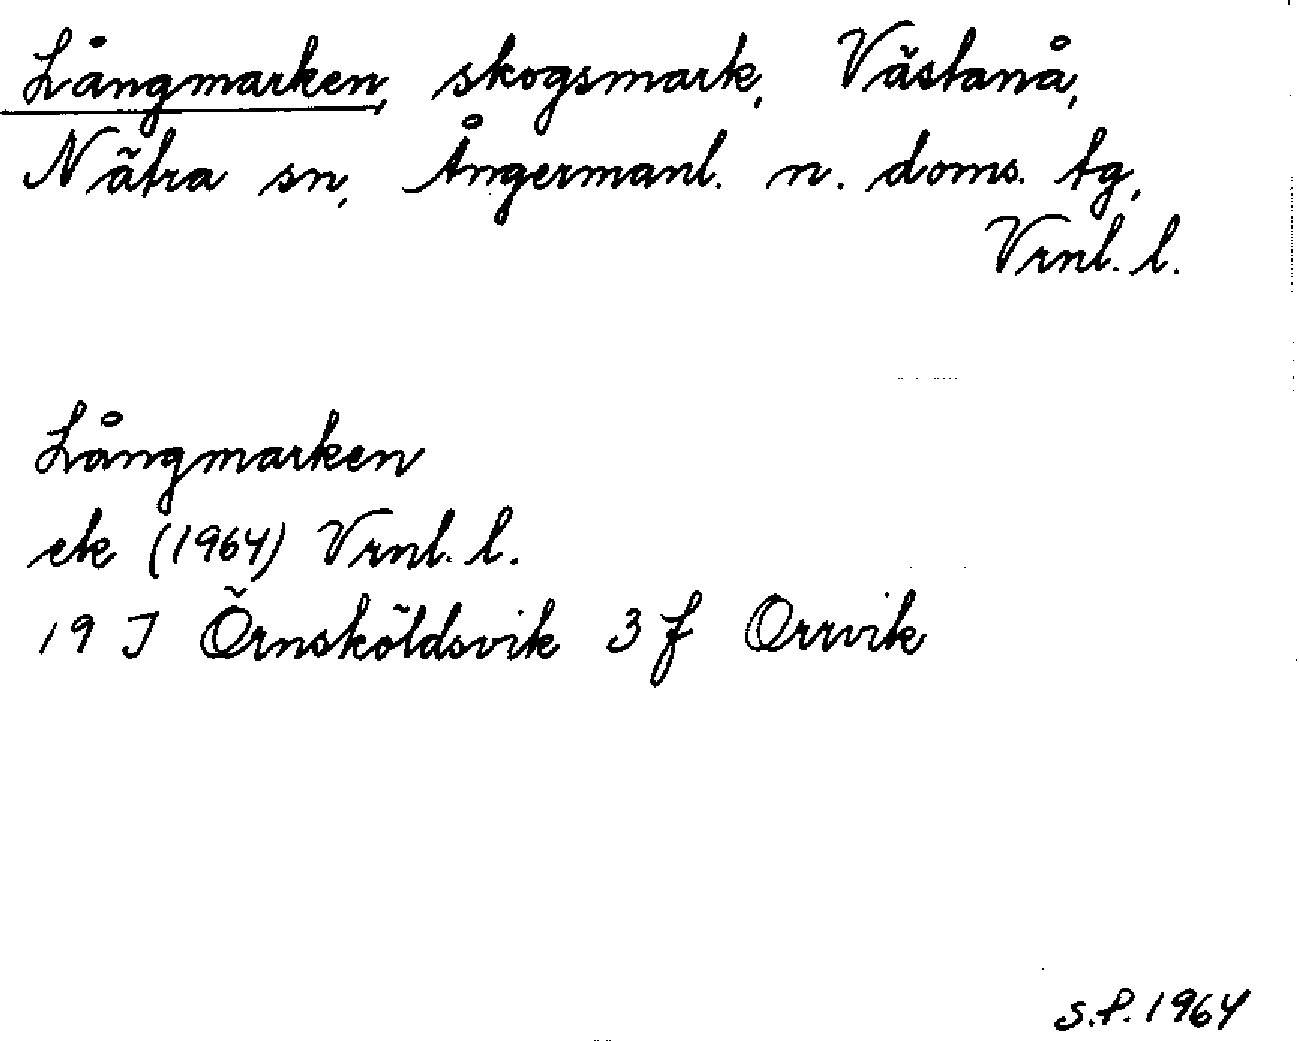 Långmarken, skogsmark, Västanå,
Nätra sn, Ångermanl. n. doms. tg,
Vrnl. l.
Långmarken
ek (1964) Vrnl. l.
19 J Örnsköldsvik 3 f Orrvik
S.P. 1964